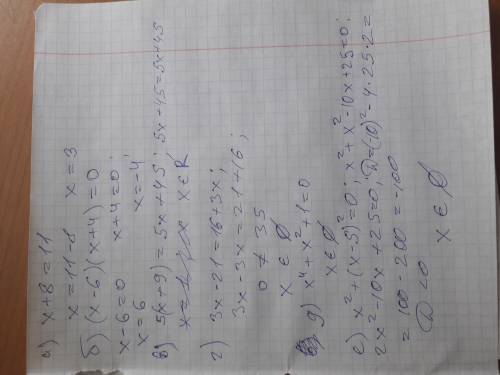 а) x+8=11
x=11-8 x=3
б) (x-6)(x+4)=0
x-6=0 x+4=0;
x=6 x=-4
в) 5(x+9)=5x+45; 5x-45=5x+45
x∈R
г) 3x-21=16+3x;
3x-3x=21+16;
0≠35
x∈∅
д) x⁴+x²+1=0
x∈∅
е) x²+(x-5)²=0; x²+x²-10x+25=0;
2x²-10x+25=0; D=(-10)²-4·25·2=
=100-200=-100
D<0 x∈∅